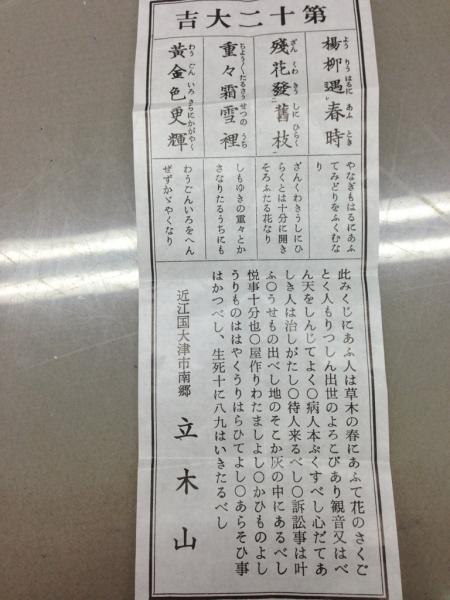 第十二大吉
楊柳遇春時
よう りう はるに あふ とき
残花發舊枝
ざん くわ きう しに ひらく
重々霜雪裡
ちよう〱たる さう せつの うち
黃金色更輝
わう ごん いろ さらに かがやく
やなぎもはるにあふ
てみどりをふくむな
り
ざんくわきうしにひ
らくとは十分に開き
そろふたる花なり
しもゆきの重々とか
さなりたるうちにも
わうごんいろをへん
ぜずかゞやくなり
此みくじにあふ人は草木の春にあふて花のさくご
とく人もりつしん出世のよろこびあり観音又はべ
ん天をしんじてよく〇病人本ぷくすべし心だてあ
しき人は治しがたし〇待人来るべし〇訴訟事は叶
ふ〇うせもの出べし地のそこか灰の中にあるべし
悦事十分也〇屋作りわたましよし〇かひものよし
うりものははやくうりはらひてよし〇あらそひ事
はかつべし、生死十に八九はいきたるべし
近江国大津市南郷 立木山